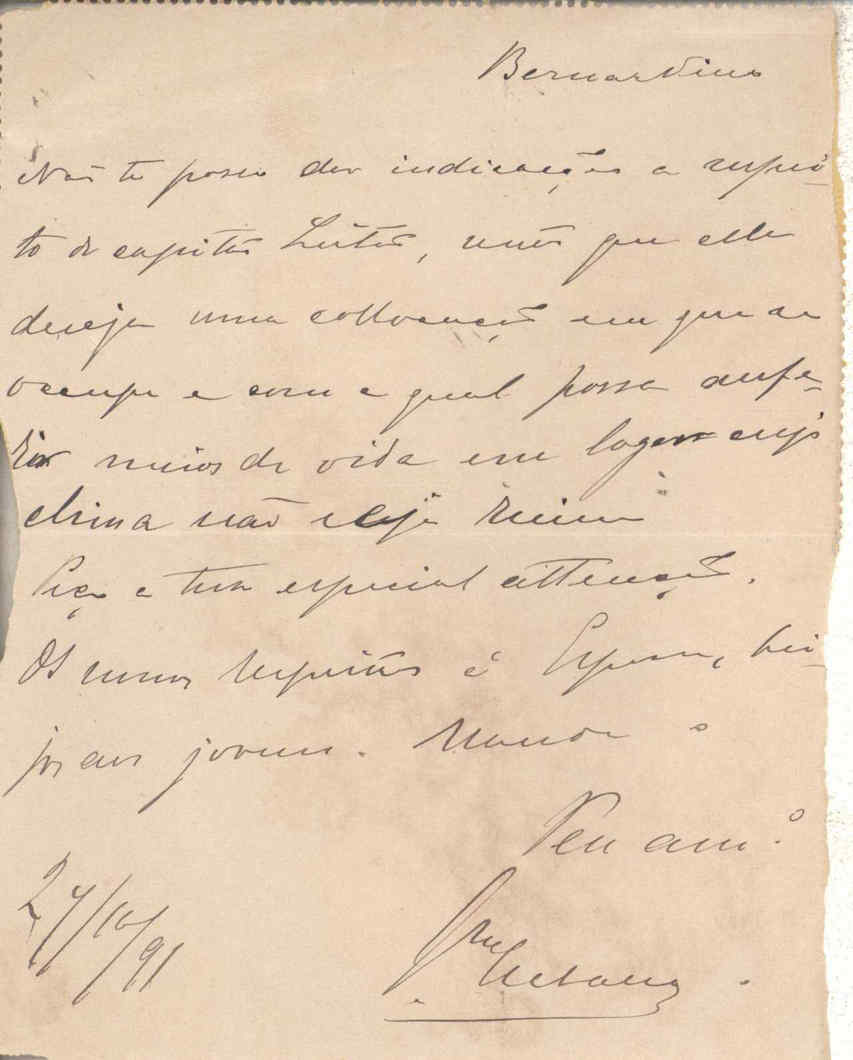 Bernardino
Não te posso dar indicações a respei-
to do capitão Leitão, senão que elle
deseja uma collocação em que se
occupe e com a qual possa aufe-
rir meios de vida em logar cujo
clima não seja ruim
Peço a tua especial attenção.
Os meus respeitos á Esposa, bei-
jos aos jovens. Manda o
Teu am.º
27/10/91